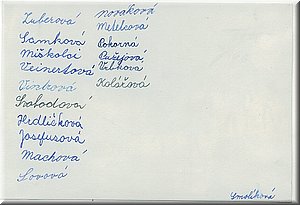 Zuberová
Samková
Miškolci
Veinertová
Vinková
Svobodová
Hrdličková
Josefusová
Machová
Sovová
Nováková
Metelcová
Pokorná
Pužejová
Vlková
Kolářová
Smolíková